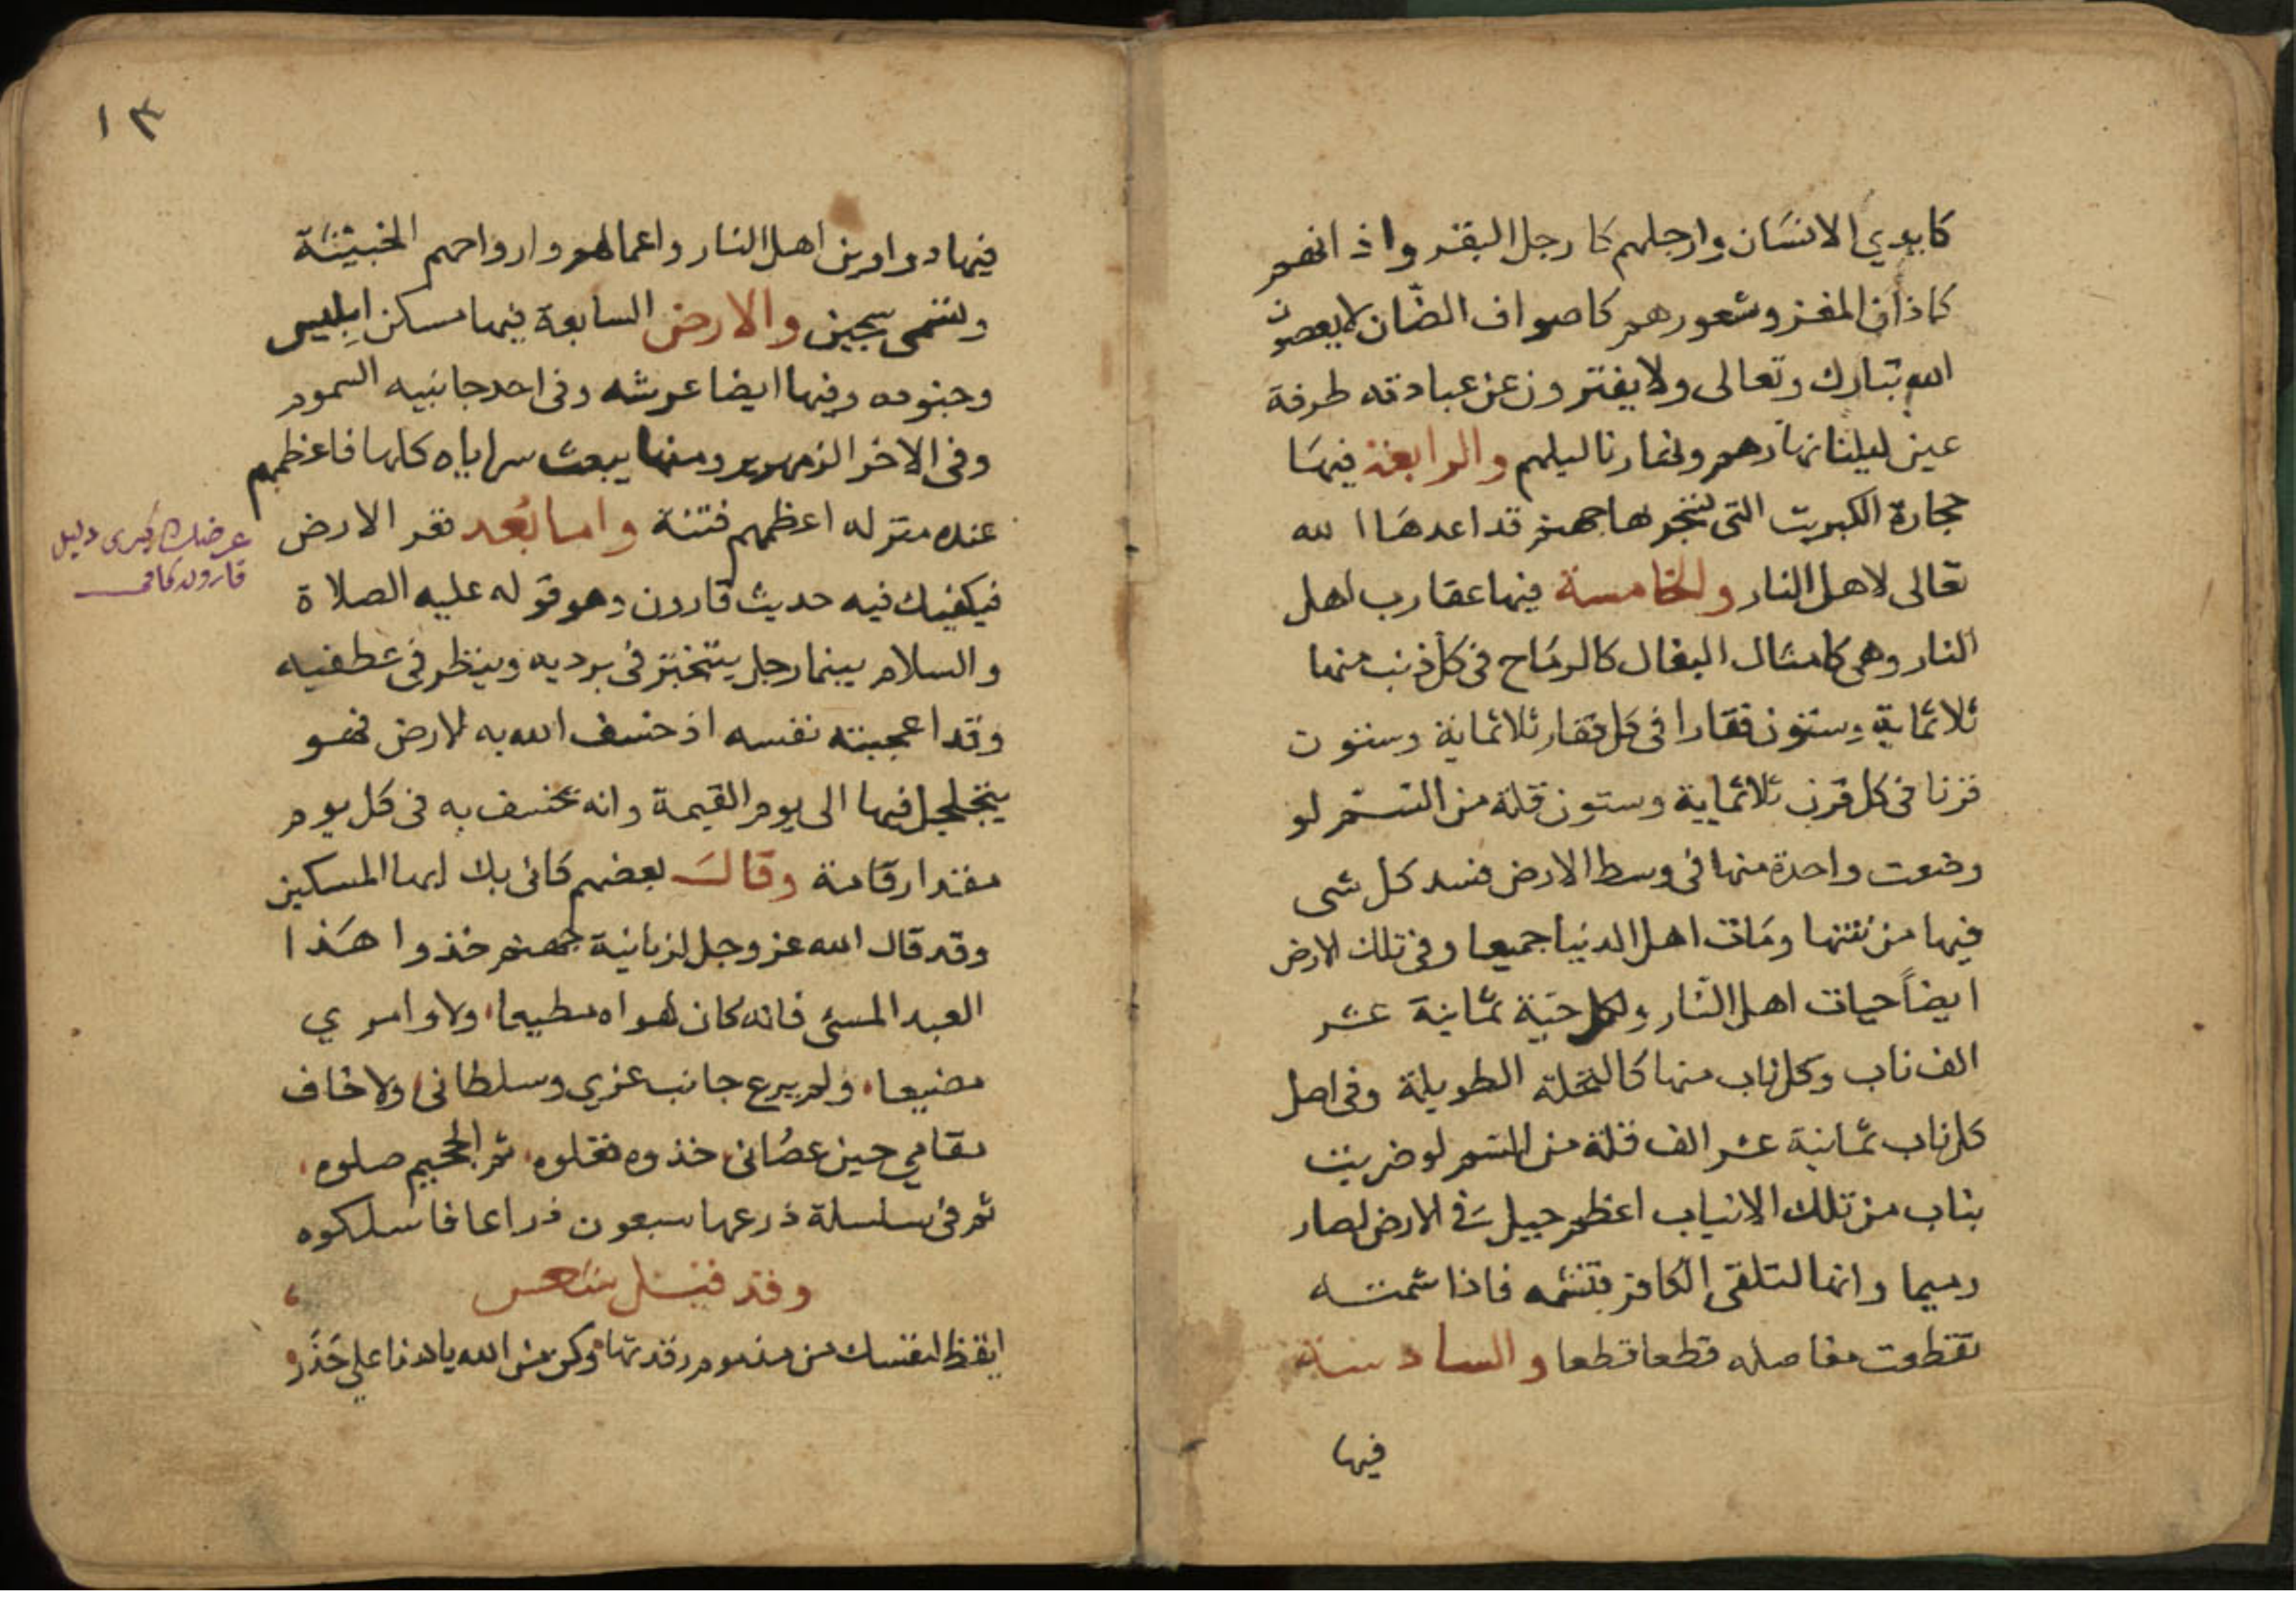 كايدي الانسان وارجلهم كارجل البقر واذانهم
كاذان المعز وشعورهم كاصواف الضان لا يعصون
الله تبارك وتعالى ولا يفترون عن عبادته طرفة
عين ليلنا نهارهم ونهارنا ليلهم والرابعة فيها
حجارة الكبريت التي تسجر ها جهنم قد اعدها الله
تعالى لاهل النار والخامسة فيها عقارب اهل
النار وهي كامثال البغال كالرماح في كل ذنب منها
ثلاثماية وستون فقارا في كل فقار ثلاثماية وستون
قرنا في كل قرن ثلاثماية وستون قلة من السم لو
وضعت واحدة منها في وسط الارض فسد كل شي
فيها من نتنها ومات اهل الدنيا جميعا وفي تلك الارض
ايضاً حيات اهل النار ولكل حية ثمانية عشر
الف ناب وكل ناب منها كالنخلة الطويلة وفي اصل
كل ناب ثمانية عشر الف قلة من السم لو ضربت
بناب من تلك الانياب اعظم جبل في الارض لصار
رميما وانها لتلقى الكافر فتنشمه فاذا شمته
تقطعت مفاصله قطعا قطعا والسادسة
فيها
١٣
فيها دواوين اهل النار واعمالهم وارواحهم الخبيثة
وتسمى سجين والارض السابعة فيها مسكن ابليس
وجنوده وفيها ايضا عرشه وفي احد جانبيه السموم
وفي الاخر الزمهرير ومنها يبعث سراياه كلها فاعظمهم
عنده منزله اعظمهم فتنة واما بُعد قعر الارض
قارون
فيكفيك فيه حديث قارون وهو قوله عليه الصلاة
والسلام بينما رجل يتبختر في برديه وينظر في عطفيه
وقد اعجبته نفسه اذ خسف الله به لارض فهو
يتجلجل فيها الى يوم القيمة وانه يخسف به في كل يوم
مقدار قامة وقال بعضهم كاني بك ايها المسكين
وقد قال الله عز وجل لزبانية جهنم خذوا هذا
العبد المسئ فانه كان لهواه مطيعا، ولاوامري
مضيعا، ولم يرع جانب عزي وسلطاني، ولا خاف
مقامي حين عصاني، خذوه فغلوه، ثم الجحيم صلوه،
ثم في سلسلة ذرعها سبعون ذراعا فاسلكوه
وقد قيل شعر
ايقظ لنفسك من منموم رقدتها، وكن من الله يا هذا على حَذَر